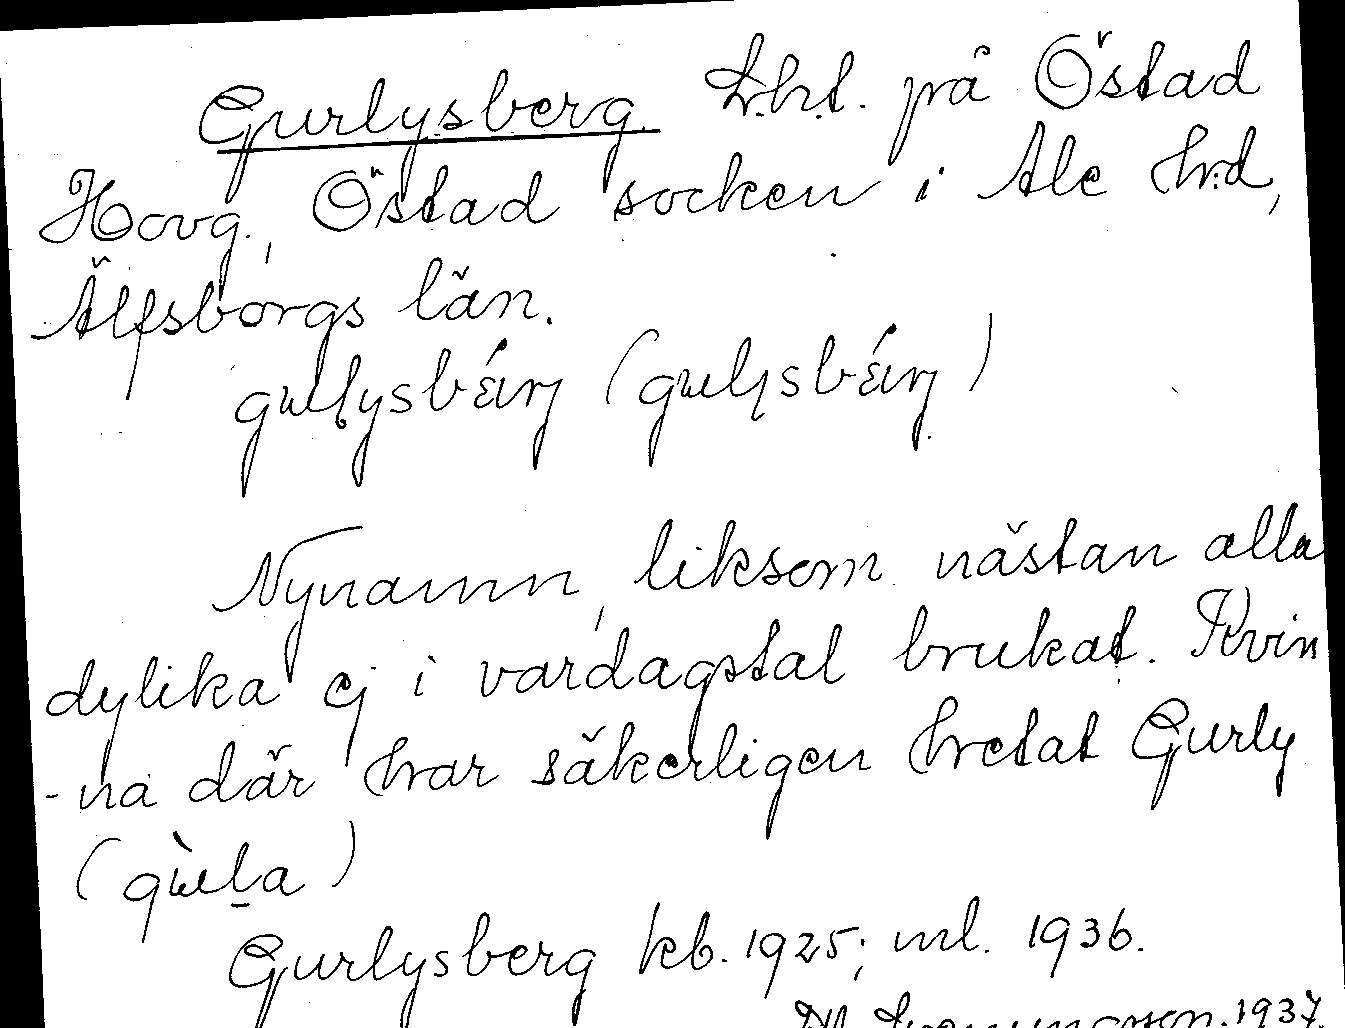 Gurlysberg. Lht. på Östad
Hovg., Östad socken i Ale hrd,
Älfsborgs län.
Nynamn, liksom nästan alla
dylika ej i vardagstal brukat. Kvin
-na där har säkerligen hetat Gurly
Gurlysberg kb. 1925; ml. 1936.
1937.